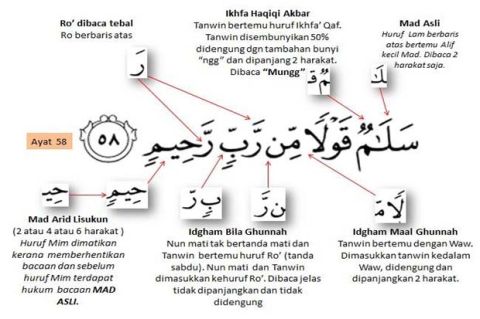 Ro’ dibaca tebal
Ro berbaris atas
رَ
Ikhfa Haqiqi Akbar
Tanwin bertemu huruf Ikhfa’ Qaf.
Tanwin disembunyikan 50%
didengung dgn tambahan bunyi
“ngg” dan dipanjang 2 harakat.
Dibaca “Mungg”
مٌ قَ
Mad Asli
Huruf Lam berbaris
atas bertemu Alif
kecil Mad. Dibaca 2
harakat saja.
لَـٰ
Ayat 58
سَلَـٰمٌ قَوْلًا مِّن رَّبٍّ رَّحِيمٍ ٥٨
حِيـ
حِيمٍ
Mad Arid Lisukun
(2 atau 4 atau 6 harakat )
Huruf Mim dimatikan
kerana memberhentikan
bacaan dan sebelum
huruf Mim terdapat
hukum bacaan MAD
ASLI.
بٍّ رَّ
ن رَّ
Idgham Bila Ghunnah
Nun mati tak bertanda mati dan
Tanwin bertemu huruf Ro’ (tanda
sabdu). Nun mati dan Tanwin
dimasukkan kehuruf Ro’. Dibaca jelas
tidak dipanjangkan dan tidak
didengung
لًا مِّ
Idgham Maal Ghunnah
Tanwin bertemu dengan Waw.
Dimasukkan tanwin kedalam
Waw, didengung dan
dipanjangkan 2 harakat.